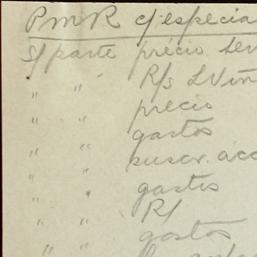 PMR c/ especia
S/ parte précio Lev
" " R/s L Viñ
" " précio
" " gastos
" " suscr. acc
" " gastos
" " R/
" " gastos
" "